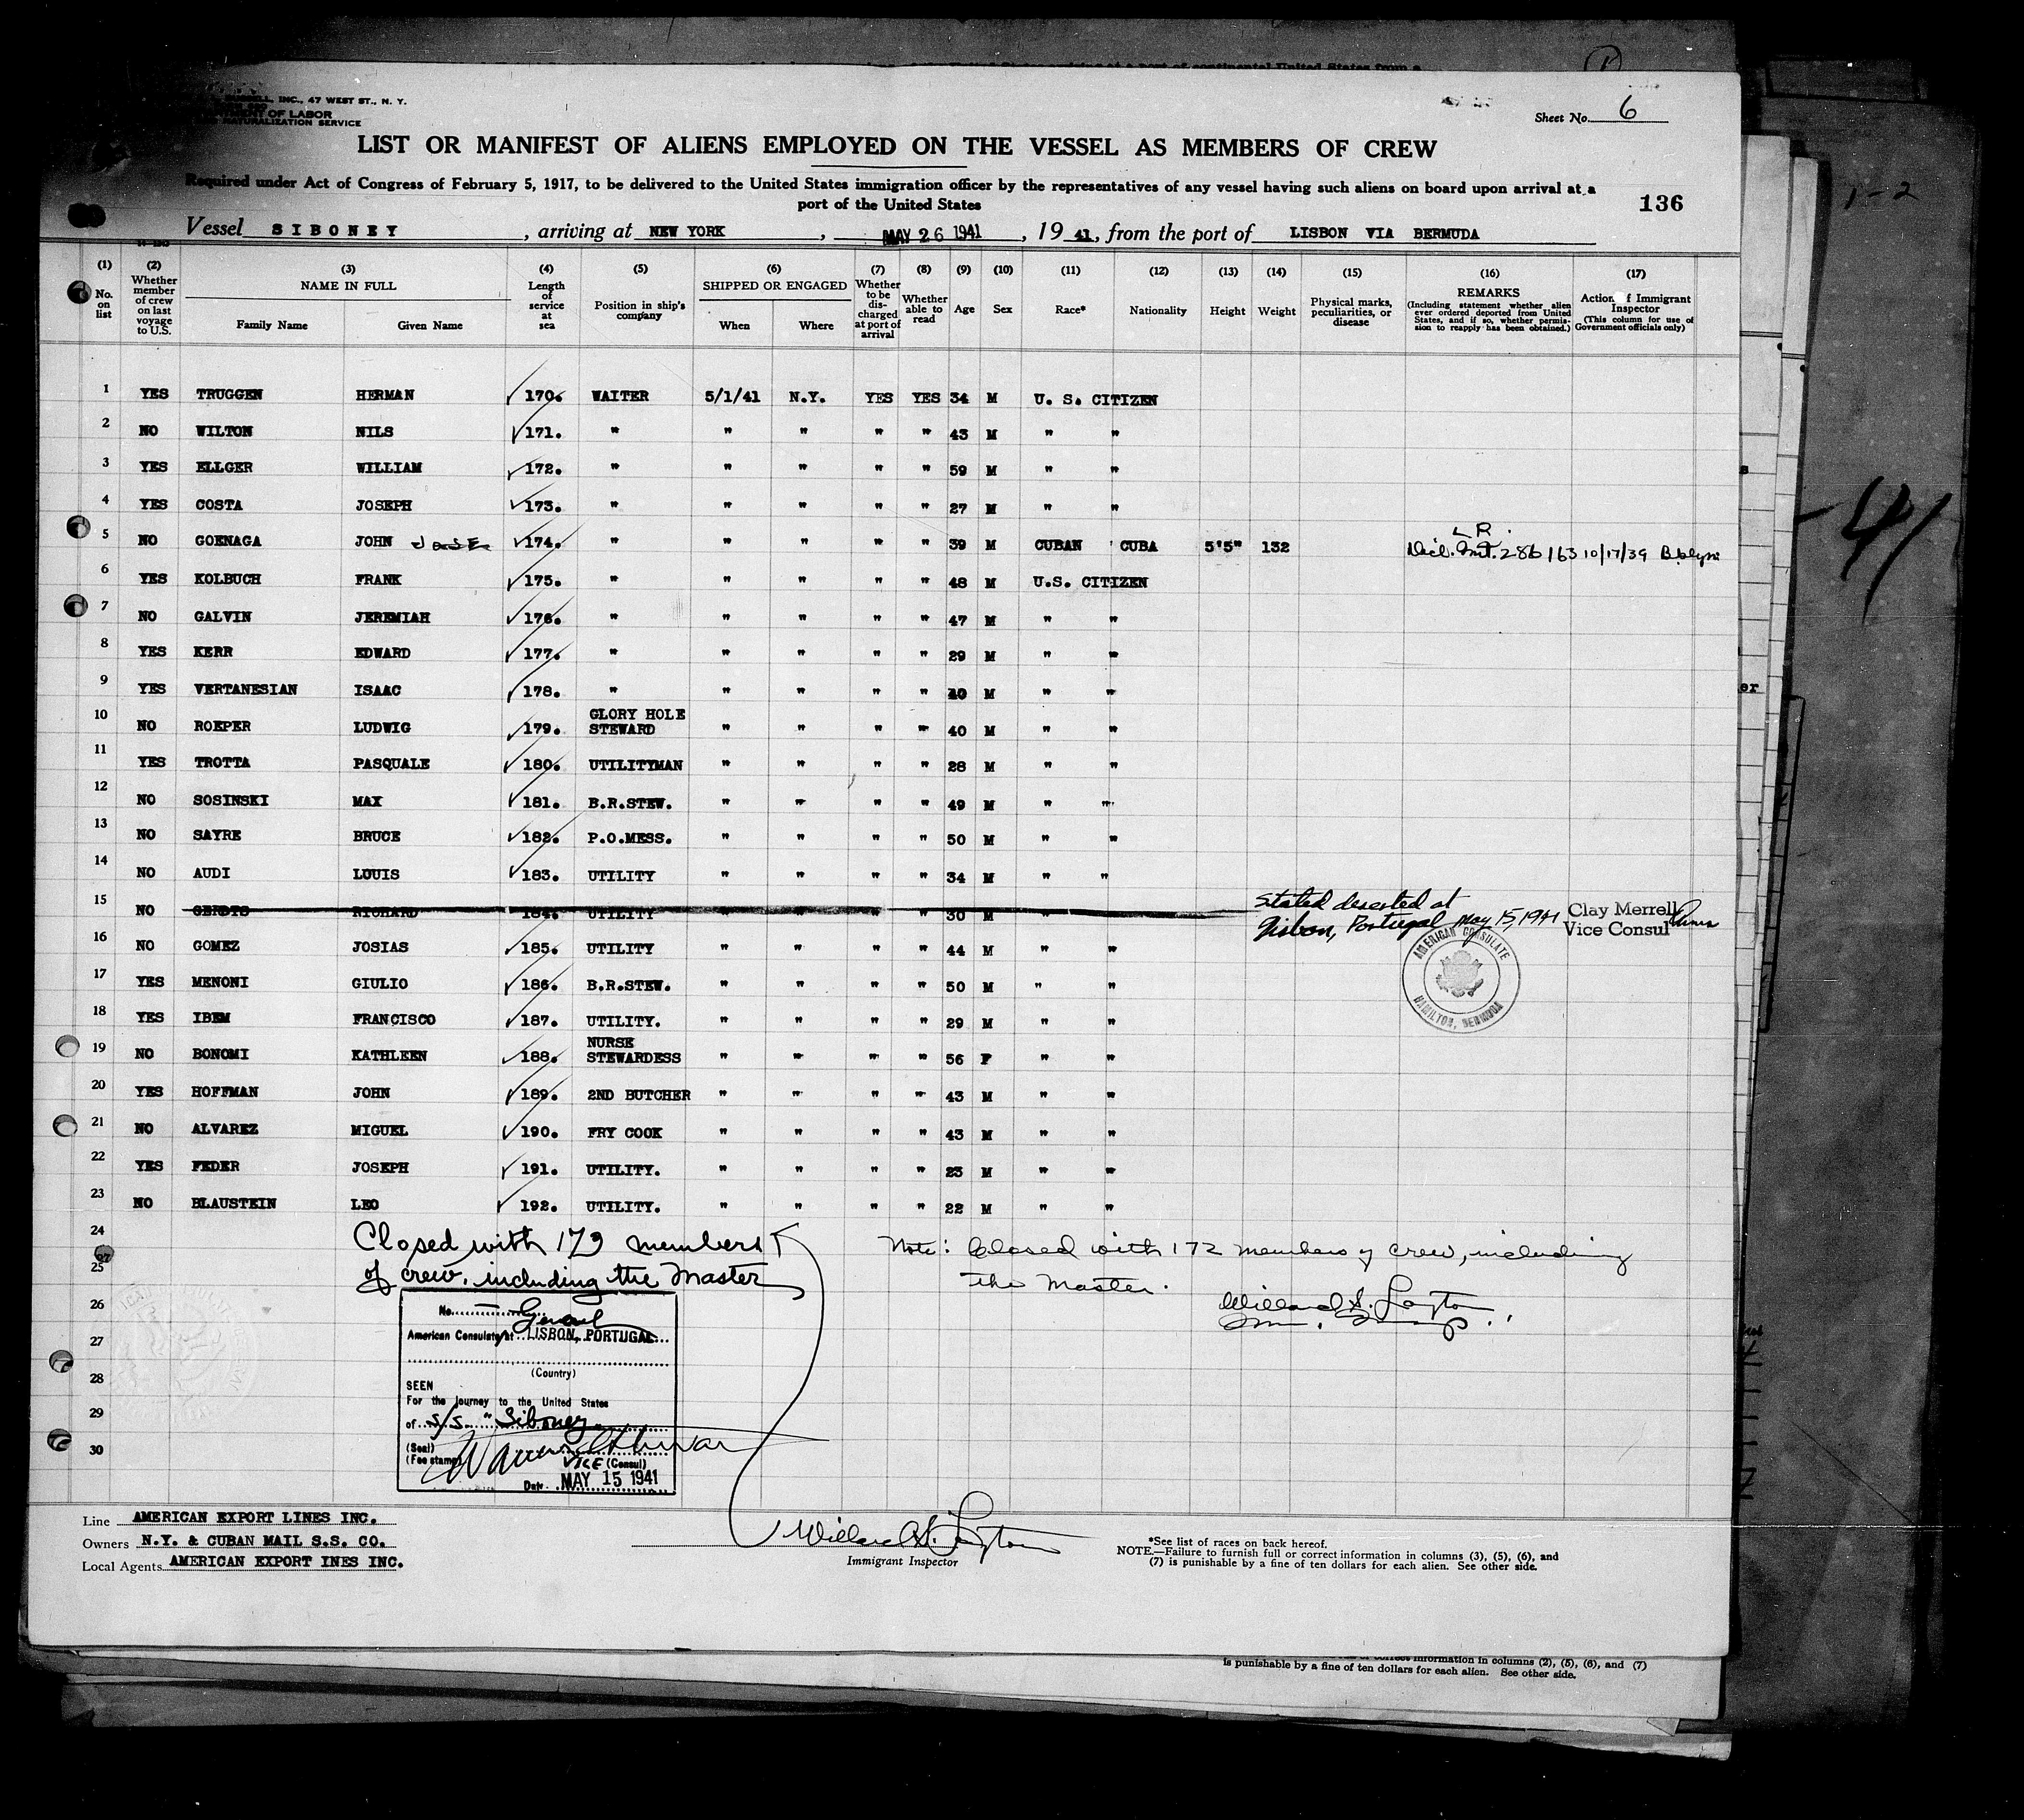 RUSSELL, INC., 47 WEST ST., N. Y.
DEPARTMENT OF LABOR
NATURALIZATION SERVICE
Sheet No. 6
LIST OR MANIFEST OF ALIENS EMPLOYED ON THE VESSEL AS MEMBERS OF CREW
Required under Act of Congress of February 5, 1917, to be delivered to the United States immigration officer by the representatives of any vessel having such aliens on board upon arrival at a
port of the United States
136
Vessel SIBONEY, arriving at NEW YORK, MAY 26 1941, 19 41, from the port of LISBON VIA BERMUDA
(1) No. on list (2) Whether member of crew on last voyage to U.S. (3) NAME IN FULL Family Name Given Name (4) Length of service at sea (5) Position in ship's company (6) SHIPPED OR ENGAGED When Where (7) Whether to be discharged at port of arrival (8) Whether able to read (9) Age (10) Sex (11) Race* (12) Nationality (13) Height (14) Weight (15) Physical marks, peculiarities, or disease (16) REMARKS (Including statement whether alien ever ordered deported from United States, and if so, whether permission to reapply has been obtained.) (17) Action of Immigrant Inspector (This column for use of Government officials only)
1 YES TRUGGEN HERMAN 170. WAITER 5/1/41 N.Y. YES YES 34 M U. S. CITIZEN
2 NO WILTON NILS 171. " " " " " 43 M " "
3 YES ELLGER WILLIAM 172. " " " " " 59 M " "
4 YES COSTA JOSEPH 173. " " " " " 27 M " "
5 NO GOENAGA JOHN JOSE 174. " " " " " 39 M CUBAN CUBA 5'5" 132 L R. Decl. Int. 286163 10/17/39 Bklyn
6 YES KOLBUCH FRANK 175. " " " " " 48 M U.S. CITIZEN
7 NO GALVIN JEREMIAH 176. " " " " " 47 M " "
8 YES KERR EDWARD 177. " " " " " 29 M " "
9 YES VERTANESIAN ISAAC 178. " " " " " 40 M " "
10 NO ROEPER LUDWIG 179. GLORY HOLE STEWARD " " " " 40 M " "
11 YES TROTTA PASQUALE 180. UTILITYMAN " " " " 28 M " "
12 NO SOSINSKI MAX 181. B.R.STEW. " " " " 49 M " "
13 NO SAYRE BRUCE 182. P.O.MESS. " " " " 50 M " "
14 NO AUDI LOUIS 183. UTILITY " " " " 34 M " "
15 NO GERDTS RICHARD 184. UTILITY " " " " 30 M " Stated deserted at Lisbon, Portugal May 15, 1941 Clay Merrell Vice Consul
16 NO GOMEZ JOSIAS 185. UTILITY " " " " 44 M " "
AMERICAN CONSULATE HAMILTON, BERMUDA
17 YES MENONI GIULIO 186. B.R.STEW. " " " " 50 M " "
18 YES IBEM FRANCISCO 187. UTILITY. " " " " 29 M " "
19 NO BONOMI KATHLEEN 188. NURSE STEWARDESS " " " " 56 F " "
20 YES HOFFMAN JOHN 189. 2ND BUTCHER " " " " 43 M " "
21 NO ALVAREZ MIGUEL 190. FRY COOK " " " " 43 M " "
22 YES FEDER JOSEPH 191. UTILITY. " " " " 23 M " "
23 NO BLAUSTEIN LEO 192. UTILITY. " " " " 22 M " "
24 Closed with 173 members Note: Closed with 172 members of crew, including
25 of crew, including the Master the Master.
26 Willard S. Layton
27
28
29
30
No. General
American Consulate at LISBON, PORTUGAL
(Country)
SEEN
For the journey to the United States
of S/S. "Siboney
(Seal)
(Fee stamp) VICE (Consul)
Date MAY 15 1941
Line AMERICAN EXPORT LINES INC.
Owners N.Y. & CUBAN MAIL S.S. CO.
Local Agents AMERICAN EXPORT INES INC.
Willard S. Layton
Immigrant Inspector
*See list of races on back hereof.
NOTE.—Failure to furnish full or correct information in columns (3), (5), (6), and
(7) is punishable by a fine of ten dollars for each alien. See other side.
correct information in columns (2), (5), (6), and (7)
is punishable by a fine of ten dollars for each alien. See other side.
1-2
41